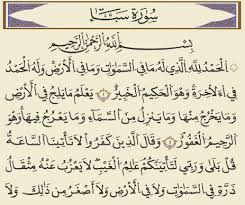 سُورَةُ سَبَإٍ
بِسْمِ ٱللَّهِ ٱلرَّحْمَٰنِ ٱلرَّحِيمِ
ٱلْحَمْدُ لِلَّهِ ٱلَّذِى لَهُۥ مَا فِى ٱلسَّمَٰوَٰتِ وَمَا فِى ٱلْأَرْضِ وَلَهُ ٱلْحَمْدُ
فِى ٱلْءَاخِرَةِ وَهُوَ ٱلْحَكِيمُ ٱلْخَبِيرُ ١ يَعْلَمُ مَا يَلِجُ فِى ٱلْأَرْضِ
وَمَا يَخْرُجُ مِنْهَا وَمَا يَنزِلُ مِنَ ٱلسَّمَآءِ وَمَا يَعْرُجُ فِيهَا وَهُوَ
ٱلرَّحِيمُ ٱلْغَفُورُ ٢ وَقَالَ ٱلَّذِينَ كَفَرُوا۟ لَا تَأْتِينَا ٱلسَّاعَةُ
قُلْ بَلَىٰ وَرَبِّى لَتَأْتِيَنَّكُمْ عَٰلِمِ ٱلْغَيْبِ لَا يَعْزُبُ عَنْهُ مِثْقَالُ
ذَرَّةٍ فِى ٱلسَّمَٰوَٰتِ وَلَا فِى ٱلْأَرْضِ وَلَآ أَصْغَرُ مِن ذَٰلِكَ وَلَآ